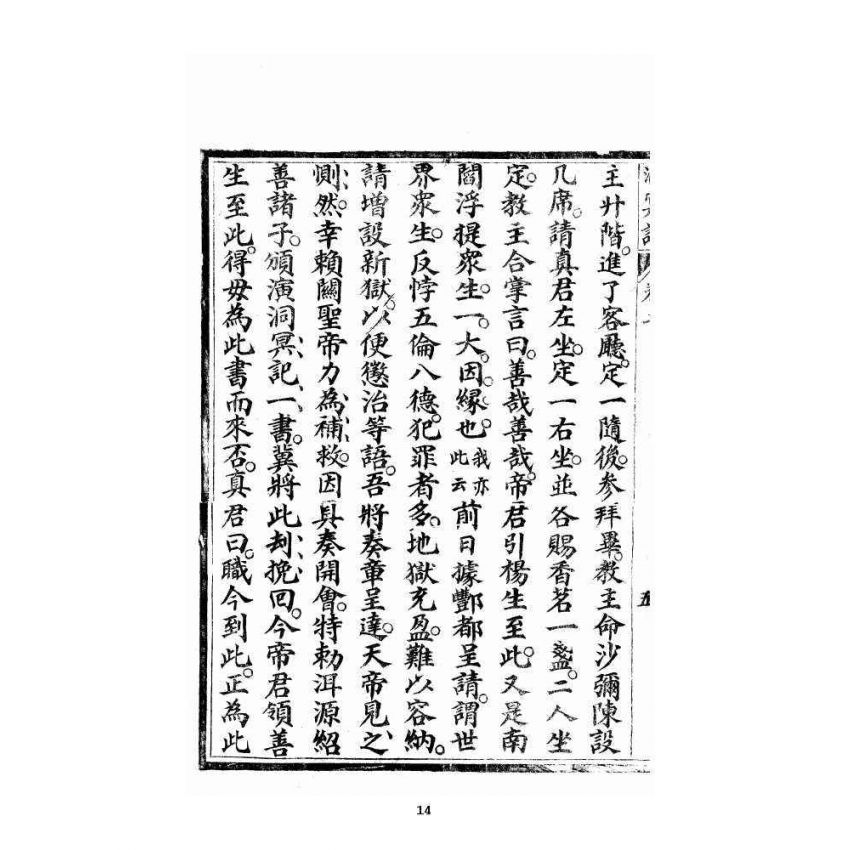 五
主廾階。進了客廳。定一隨後。参拜畢。教主命沙彌陳設
几席。請真君左坐。定一右坐。並各賜香茗一盞。二人坐
定。教主合掌言曰。善哉善哉。帝君引楊生至此。又是南
閻浮提衆生。一。大。因。緣。也。我亦此云前日據酆都呈請。謂世
界衆生。反悖五倫八德。犯罪者多。地獄充盈。難以容納。
請增設新獄。以便懲治等語。吾將奏章呈達。天帝見之、
惻、然。幸賴關聖帝力為、補、救。因具奏開會。特勅洱源紹
善諸子。頒演洞冥、記、一、書。冀將此、刦、挽、回。今帝君領善
生至此。得毋為此書而來否。真君曰。職今到此。正為此
14